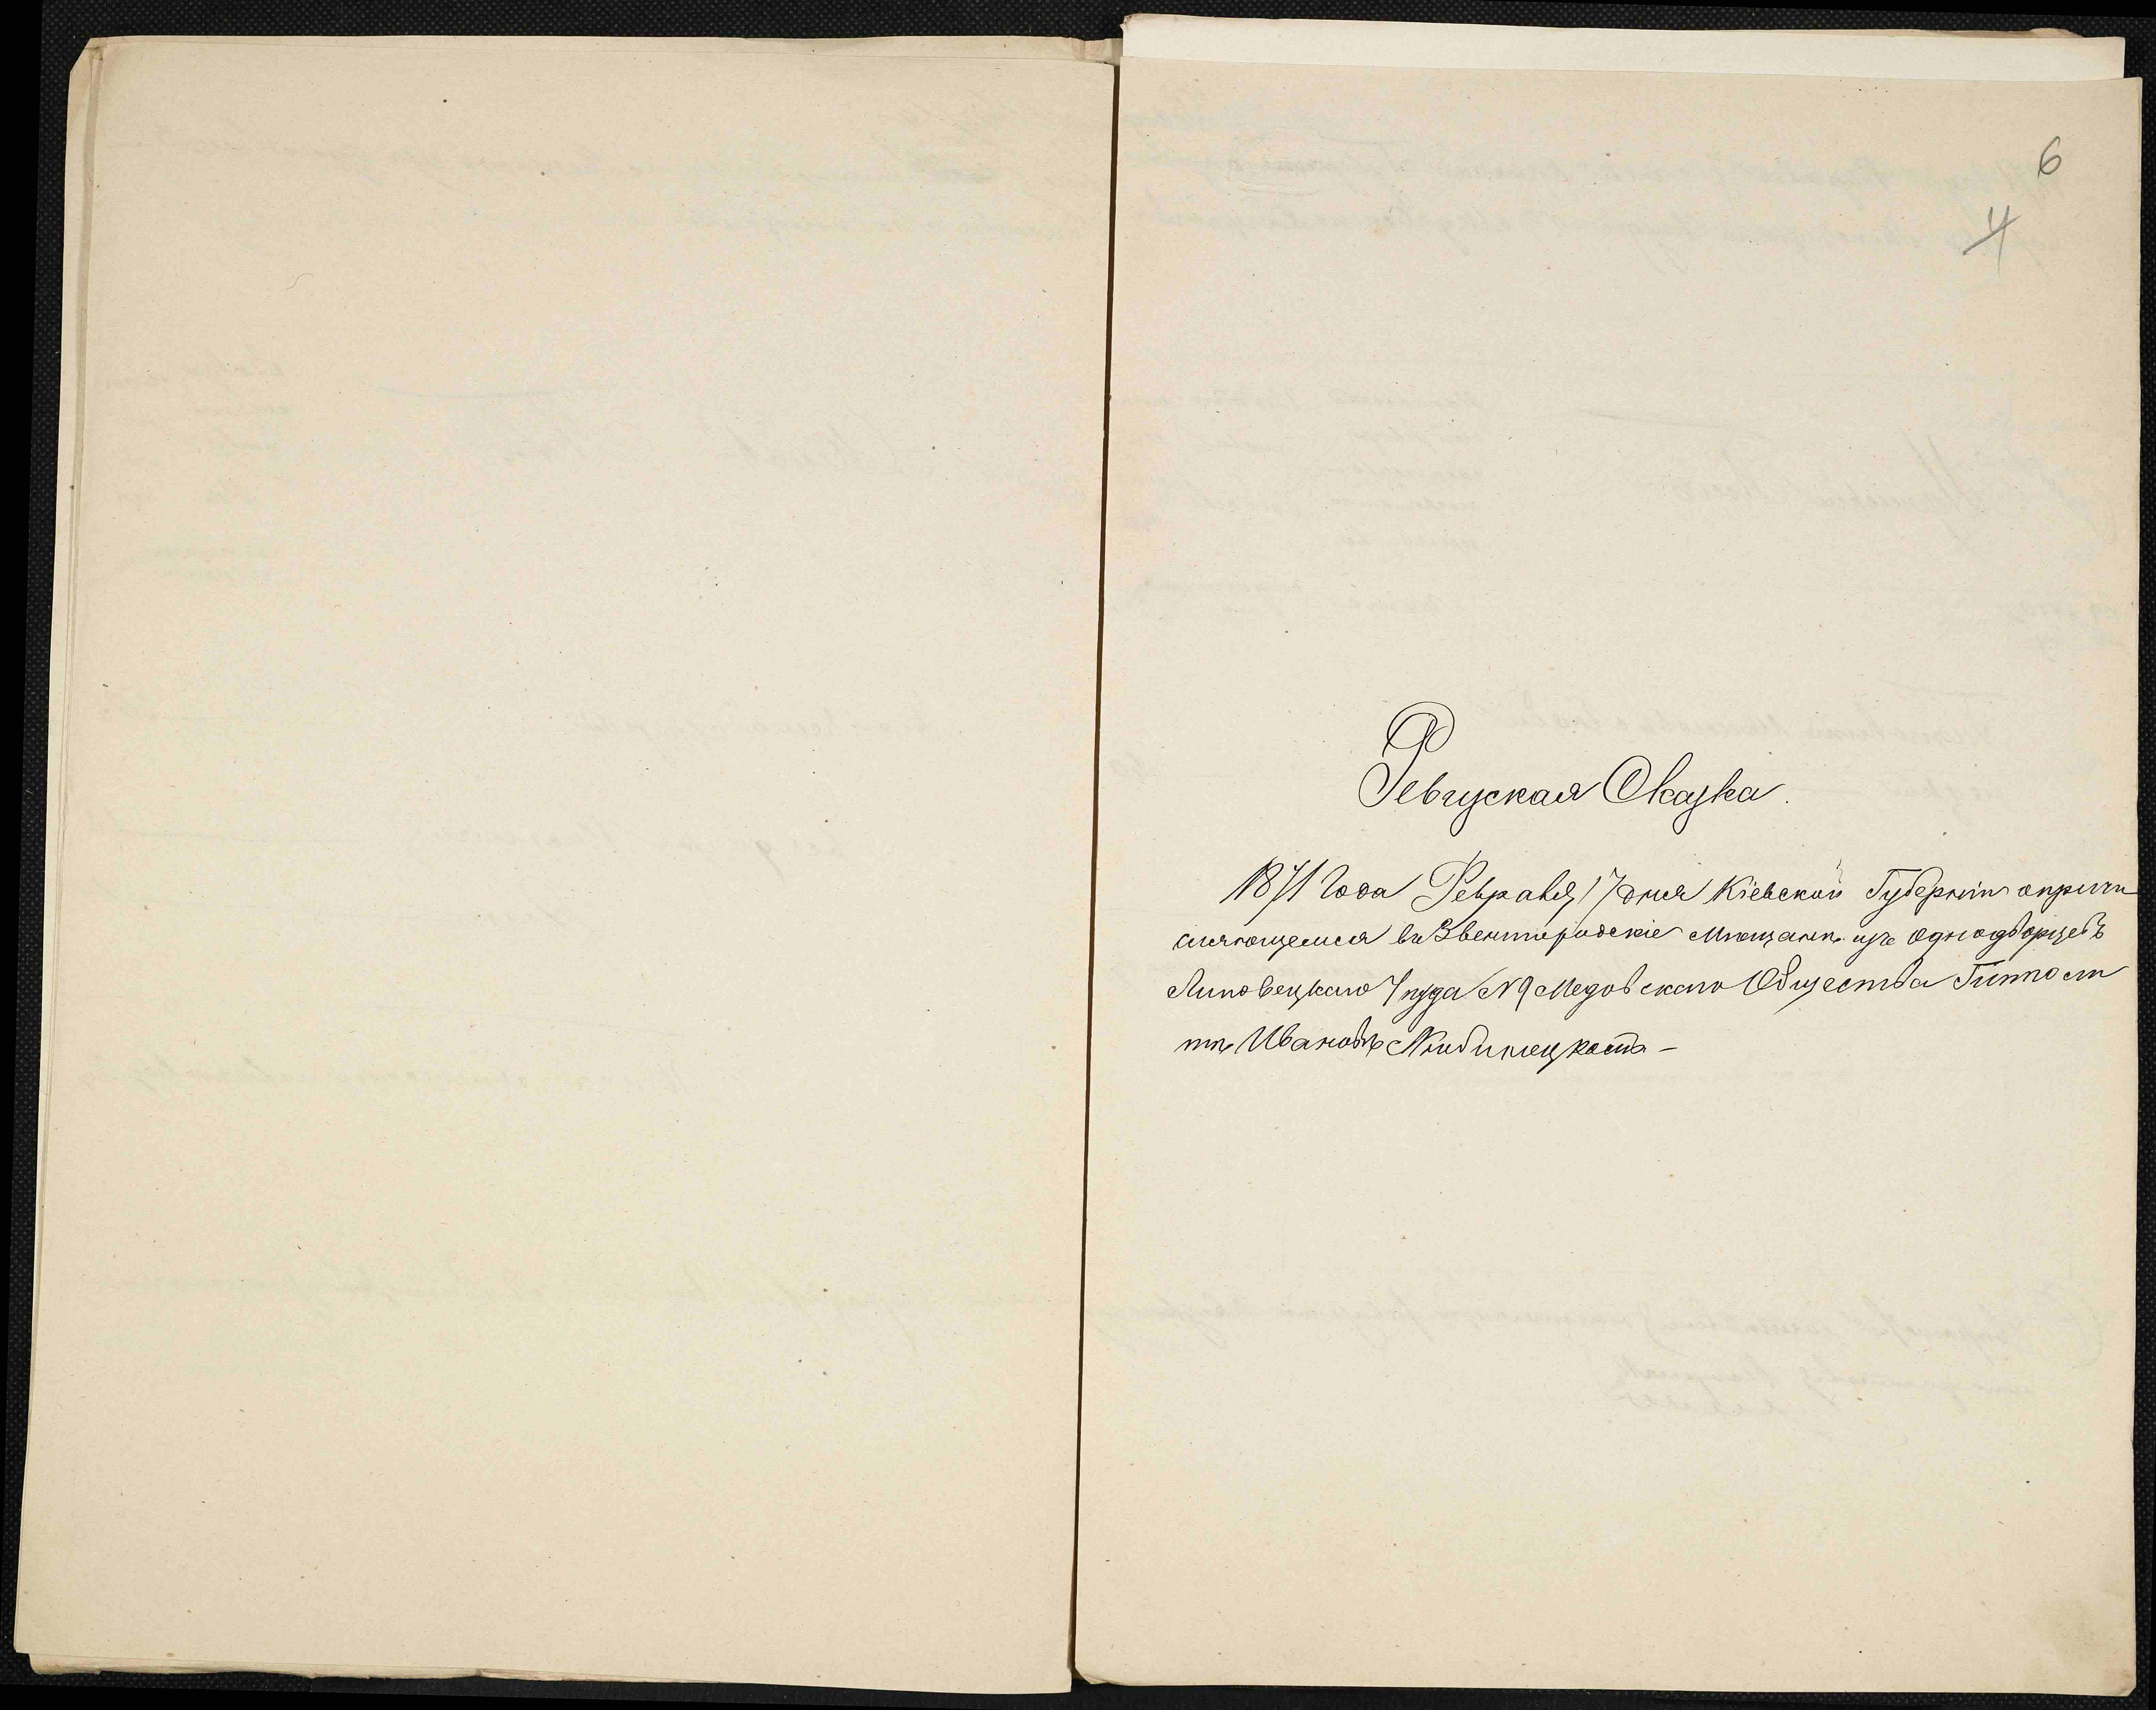 6
4
Ревизская Сказка.
1871 Года Февраля 17 дня Кіевской Губерніи опричи
сляющемся въ Звенигородскіе Мѣщанѣ изъ Однодворцевъ
Липовецкаго Уѣзда №9 Медовскаго Общества
Ивановѣ